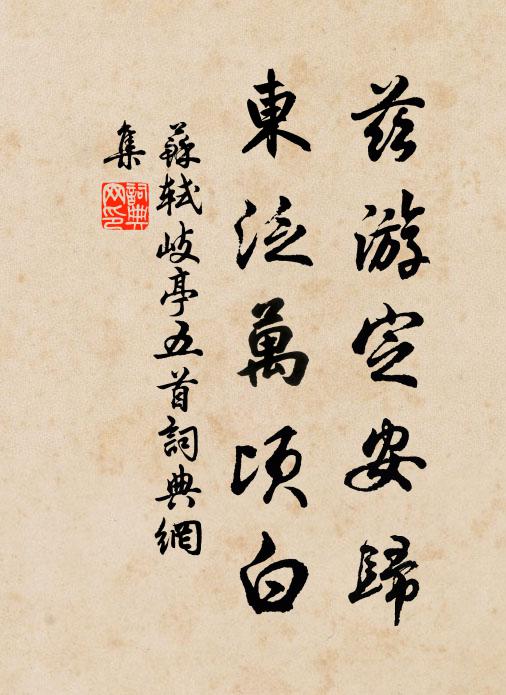 茲游定安歸
東泛萬頃白
蘇軾岐亭五首詞典網
集
詞典
网印